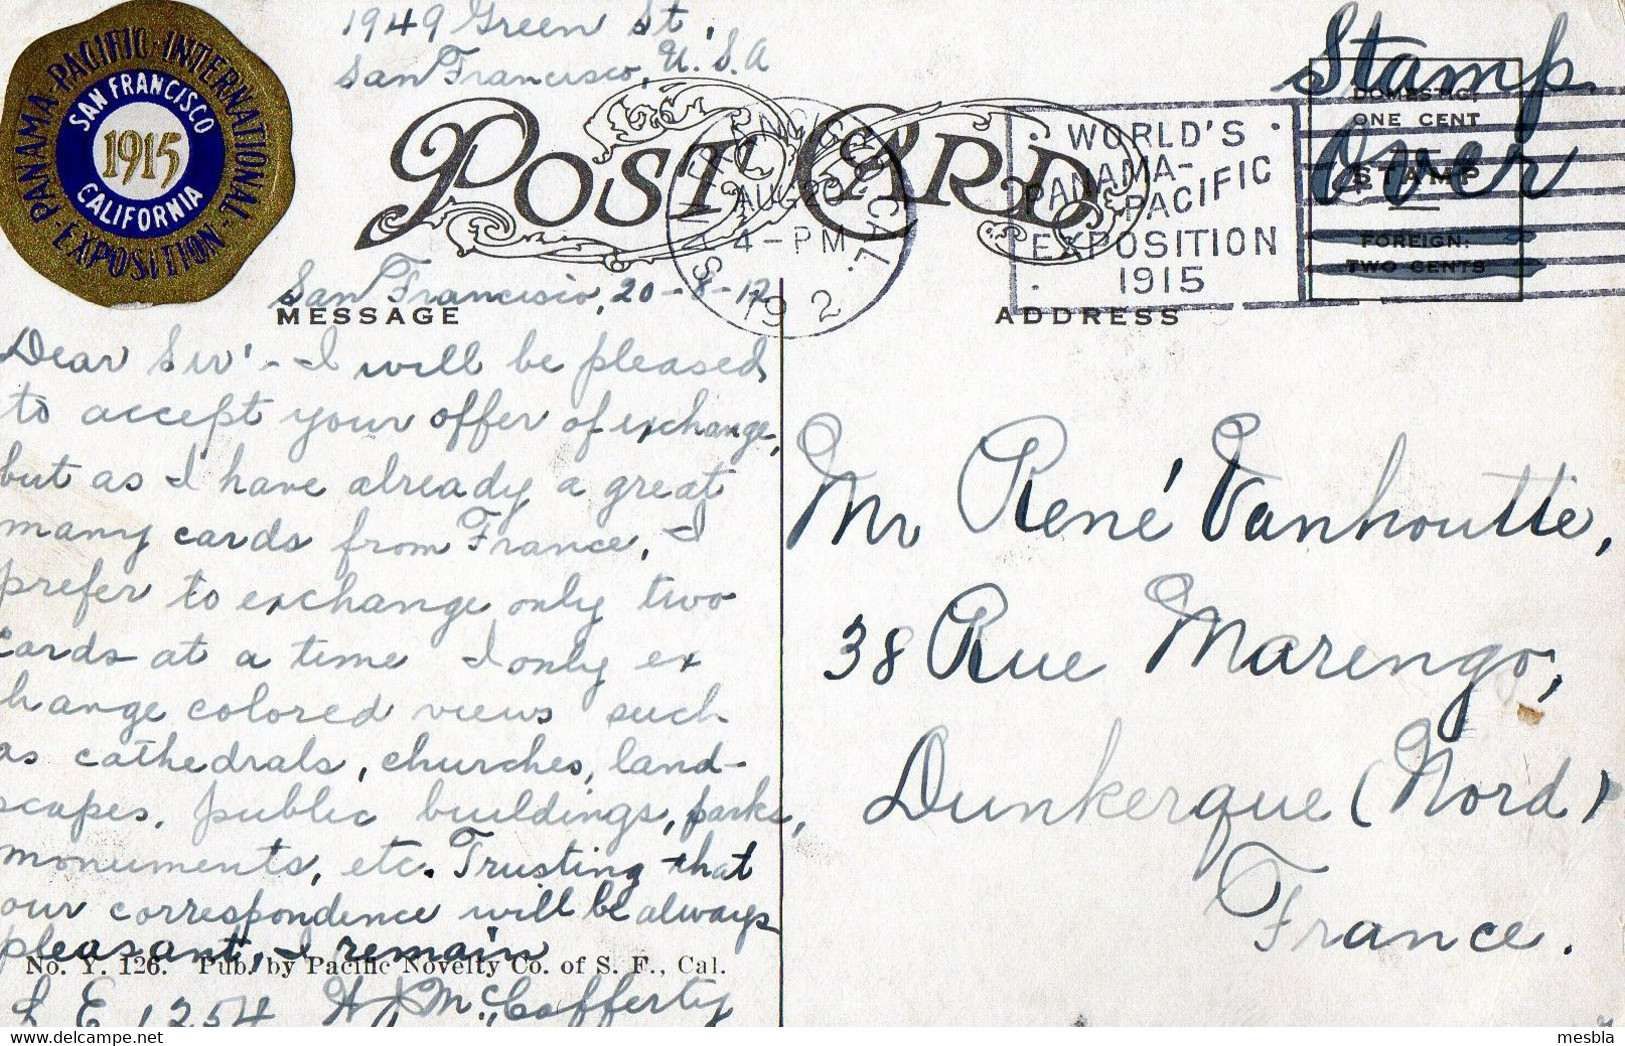 1949 Green St,
San Francisco, U.S.A
PANAMA-PACIFIC-INTERNATIONAL-EXPOSITION-
SAN FRANCISCO
1915
CALIFORNIA
POST CARD
SAN FRANCISCO, CAL.
AUG 20
4-PM
WORLD'S
PANAMA-
PACIFIC
EXPOSITION
1915
Stamp
Over
DOMESTIC:
ONE CENT
STAMP
FOREIGN:
TWO CENTS
San Francisco, 20-8-12
MESSAGE
Dear Sir'- I will be pleased
to accept your offer of exchange,
but as I have already a great
many cards from France, I
prefer to exchange only two
cards at a time I only ex
hange colored views such
as cathedrals, churches, land-
scapes, public buildings, parks,
monuments, etc. Trusting that
our correspondence will be always
pleasant, I remain
No. Y. 126. Pub. by Pacific Novelty Co. of S. F., Cal.
L E 1254 McCafferty
ADDRESS
Mr René Vanhoutte,
38 Rue Marengo,
Dunkerque (Nord)
France.
mesbla